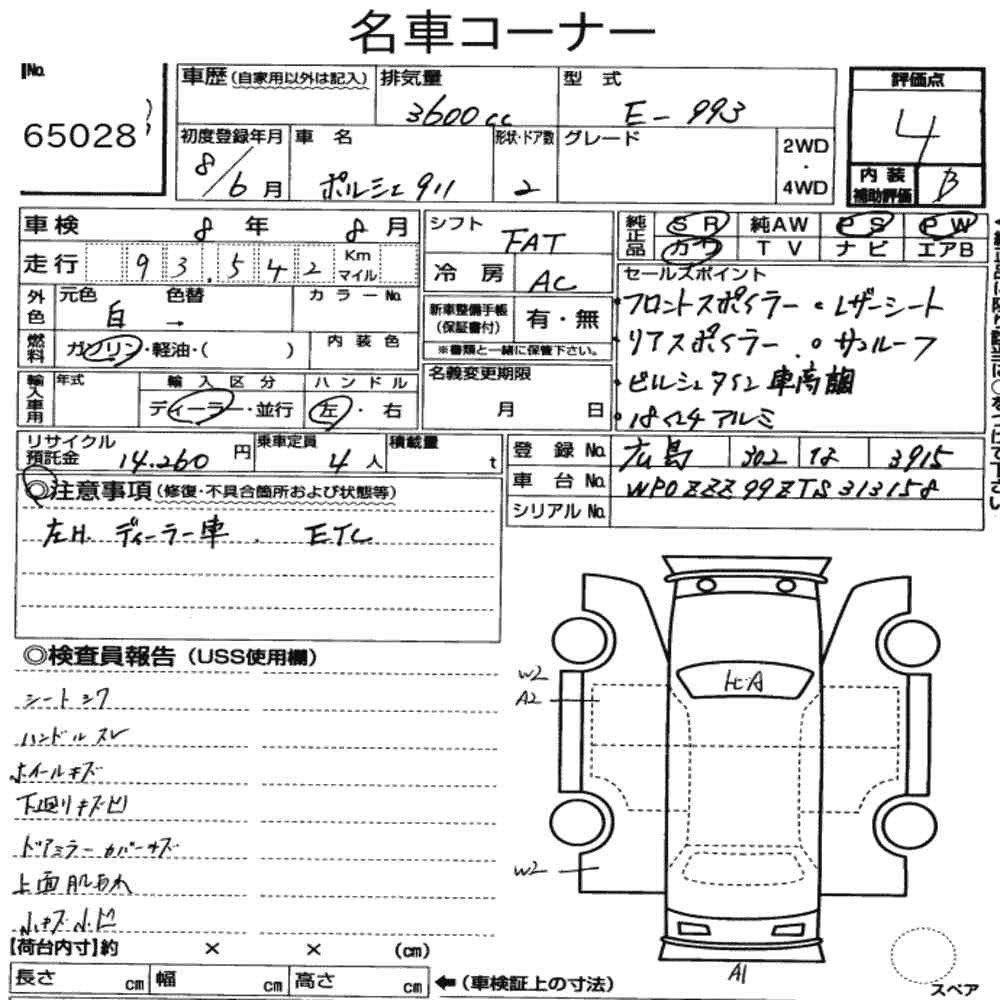 名車コーナー
No. 65028
車歴(自家用以外は記入) 排気量 3600cc 型式 E-993
評価点 4
初度登録年月 8/6月 車名 ポルシェ911 形状・ドア数 2 グレード 2WD・4WD
内装補助評価 B
車検 8年 8月 シフト FAT 純正品 SR 純AW PS PW
カワ TV ナビ エアB
走行 93,542 Km マイル 冷房 AC
セールスポイント
外色 元色 白 → 色替 カラーNo.
・フロントスポイラー ・レザーシート
新車整備手帳(保証書付) 有・無
・リアスポイラー ・サンルーフ
燃料 ガソリン・軽油・( ) 内装色
※書類と一緒に保管下さい。
・ビルシュタイン車高調
輸入車用 年式 輸入区分 ハンドル 名義変更期限
ディーラー・並行 左・右 月 日
・18インチアルミ
リサイクル預託金 14.260円 乗車定員 4人 積載量 t
登録No. 広島 302 な 3915
車台No. WP0ZZZ99ZTS313158
シリアルNo.
◎注意事項(修復・不具合箇所および状態等)
左H. ディーラー車. ETC
◎検査員報告(USS使用欄)
シートシワ
ハンドルスレ
ホイールキズ
下廻りキズ凹
ドアミラーカバーキズ
上面肌あれ
小キズ小凹
W2
A2
ヒA
W2
A1
【荷台内寸】約 × × (cm)
長さ cm 幅 cm 高さ cm ←(車検証上の寸法)
スペア